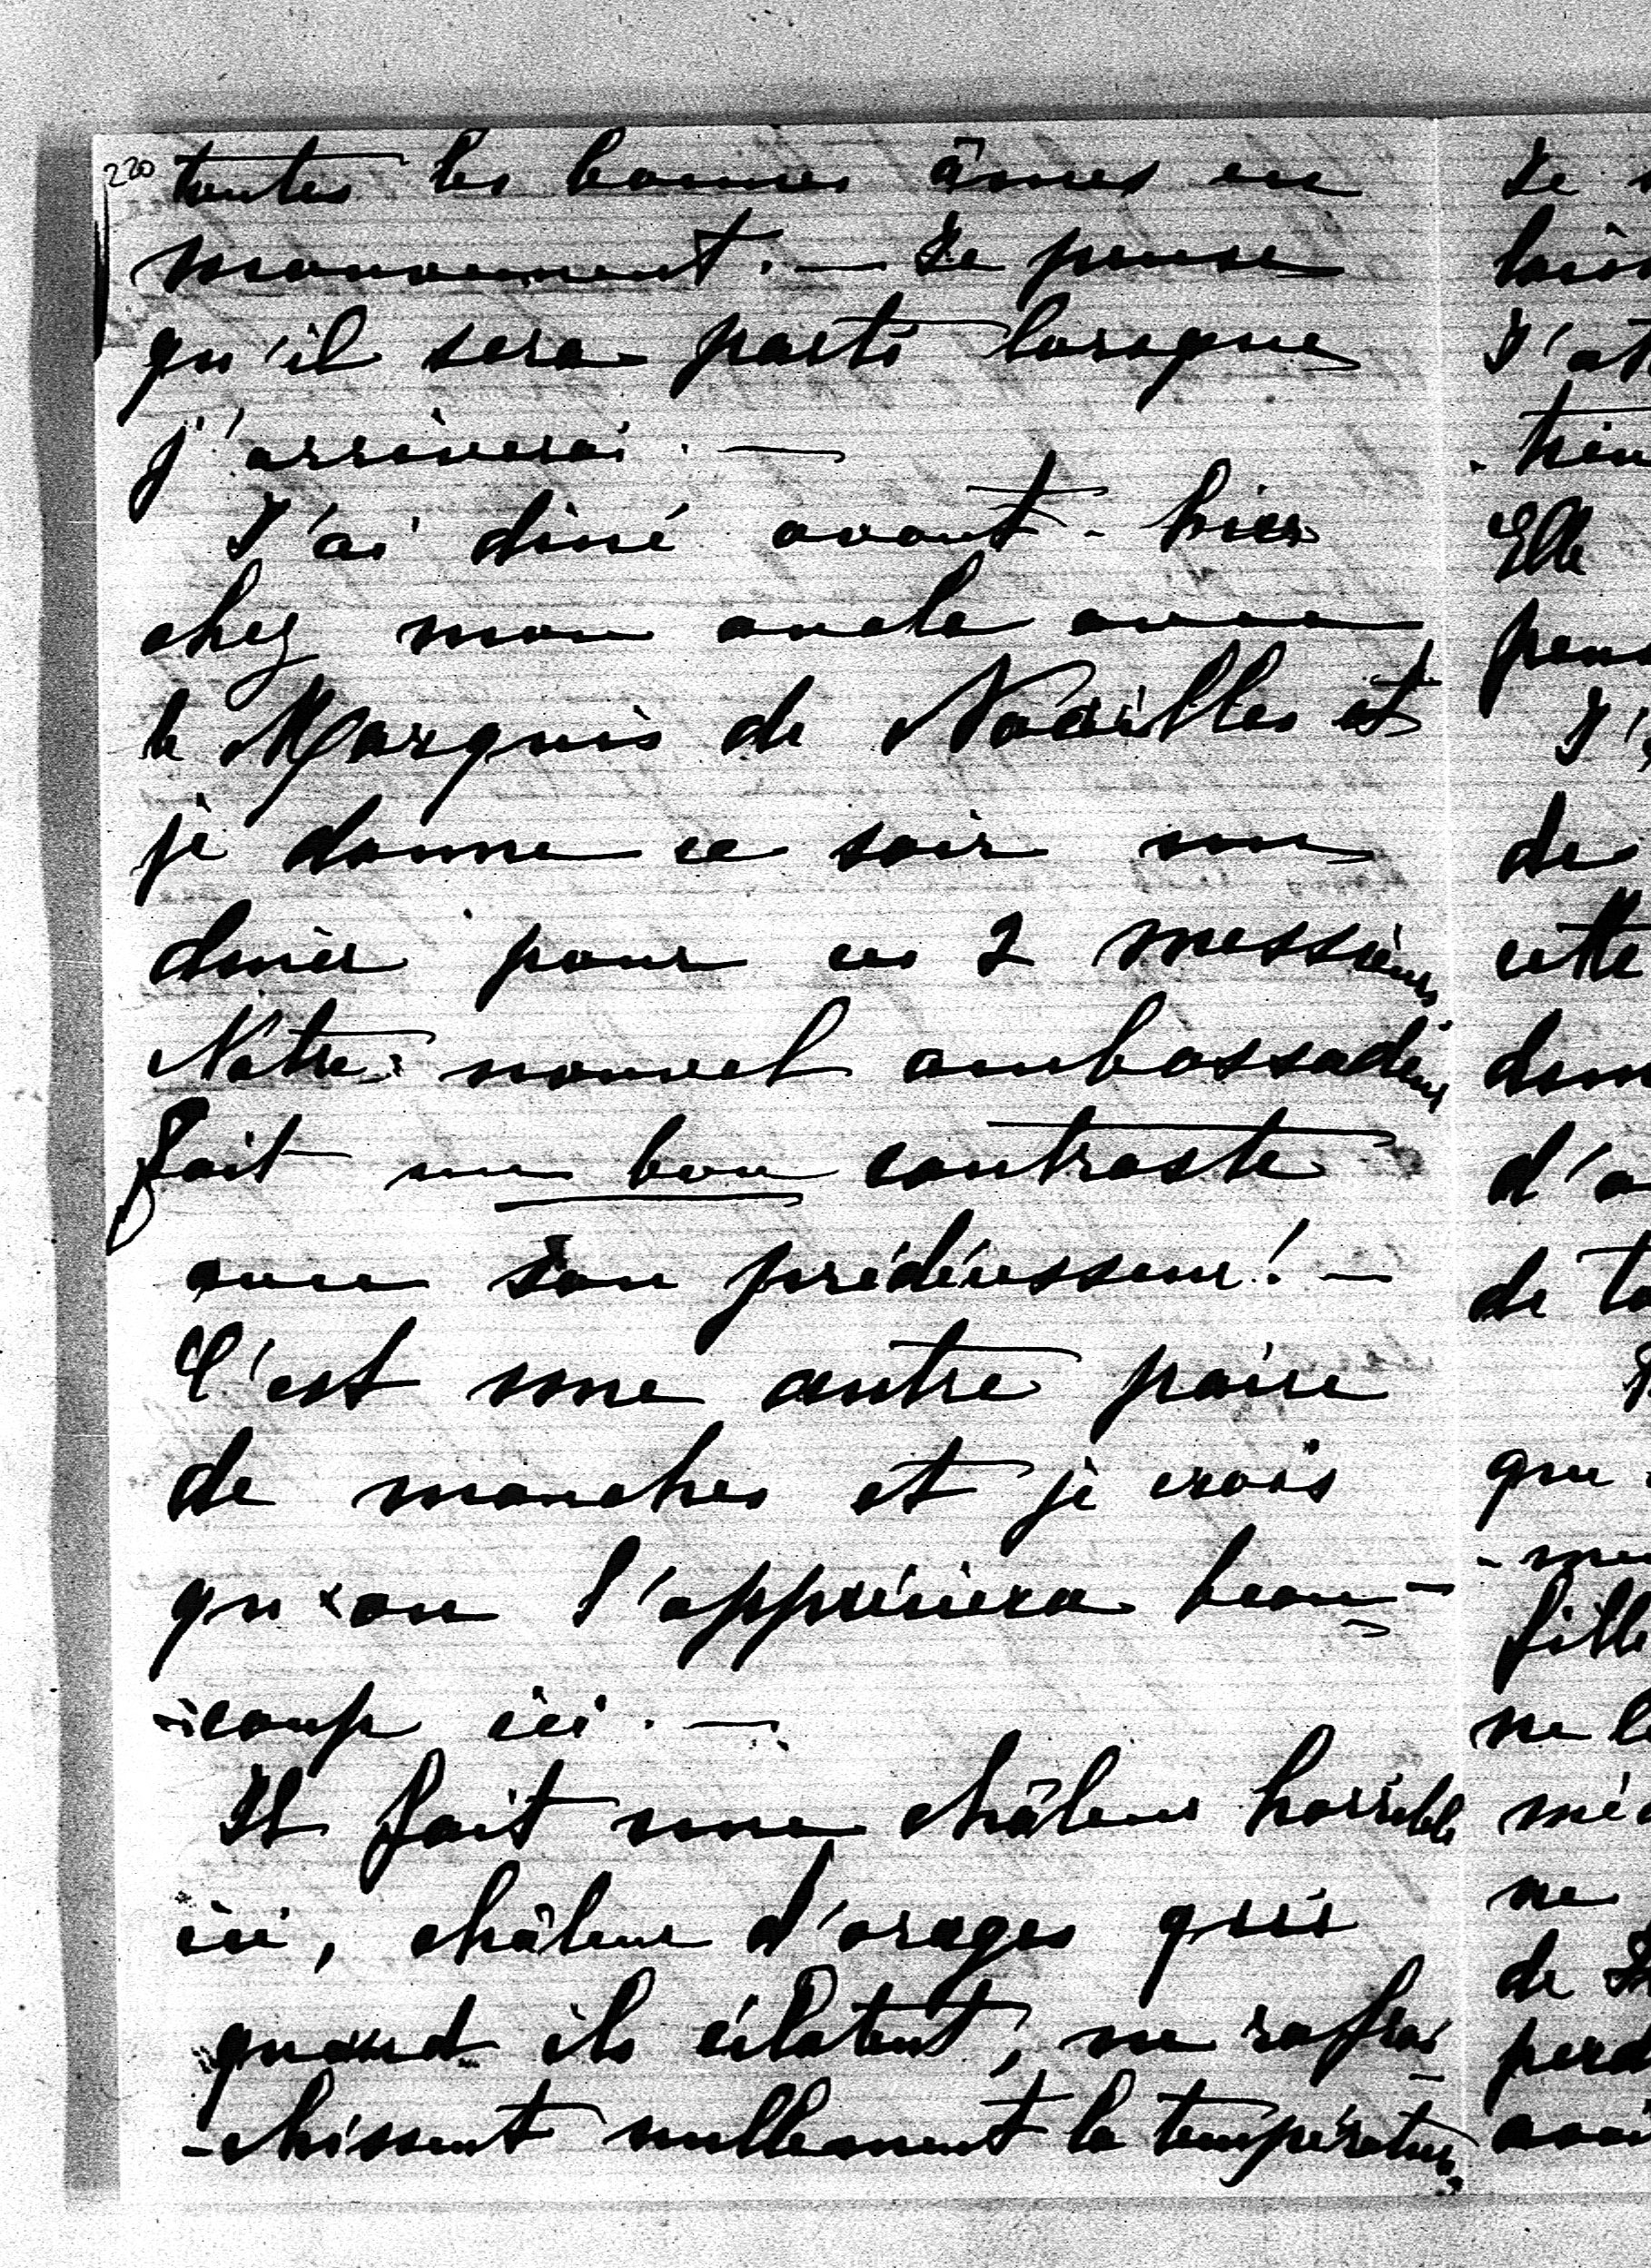 220 toutes les bonnes âmes en
mouvement. — Je pense
qu'il sera parti lorsque
j'arriverai. —
J'ai diné avant-hier
chez mon oncle avec
le Marquis de Noailles et
je donne ce soir un
diner pour ces 2 messieurs
Nôtre nouvel ambassadeur
fait un bon contraste
avec son prédécesseur! —
C'est une autre paire
de manches et je crois
qu'on l'appréciera beau-
-coup ici. —
Il fait une châleur horrible
ici, châleur d'orages qui
quand ils éclatent, ne rafraî-
-chissent nullement la température.
Je
J'att
Elle
pens
J'
de
cette
dem
d'a
de to
que
fille
ne l
ne
de
perd
avai